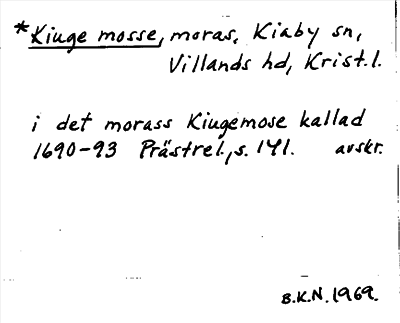 *Kiuge mosse, moras, Kiaby sn,
Villands hd, Krist.l.
i det morass Kiugemose kallad
1690-93 Prästrel., s. 141. avskr.
B.K.N. 1969.